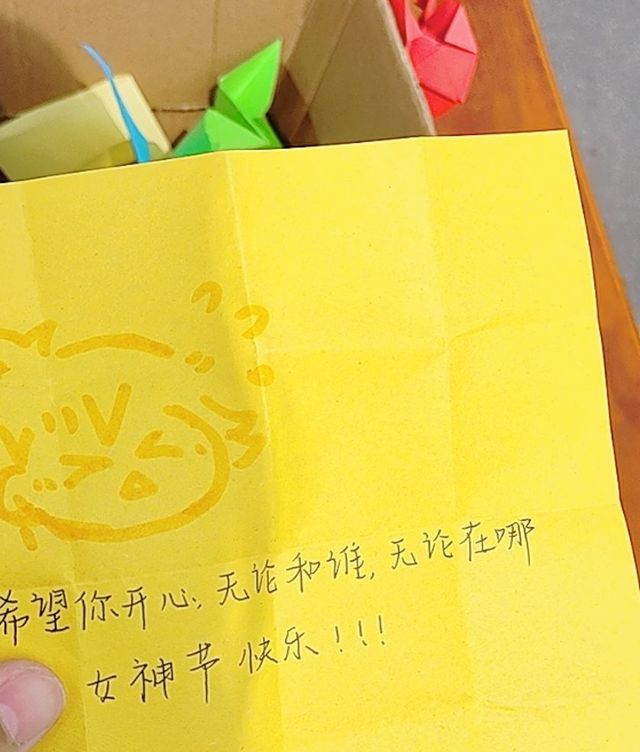 希望你开心，无论和谁，无论在哪
女神节快乐！！！